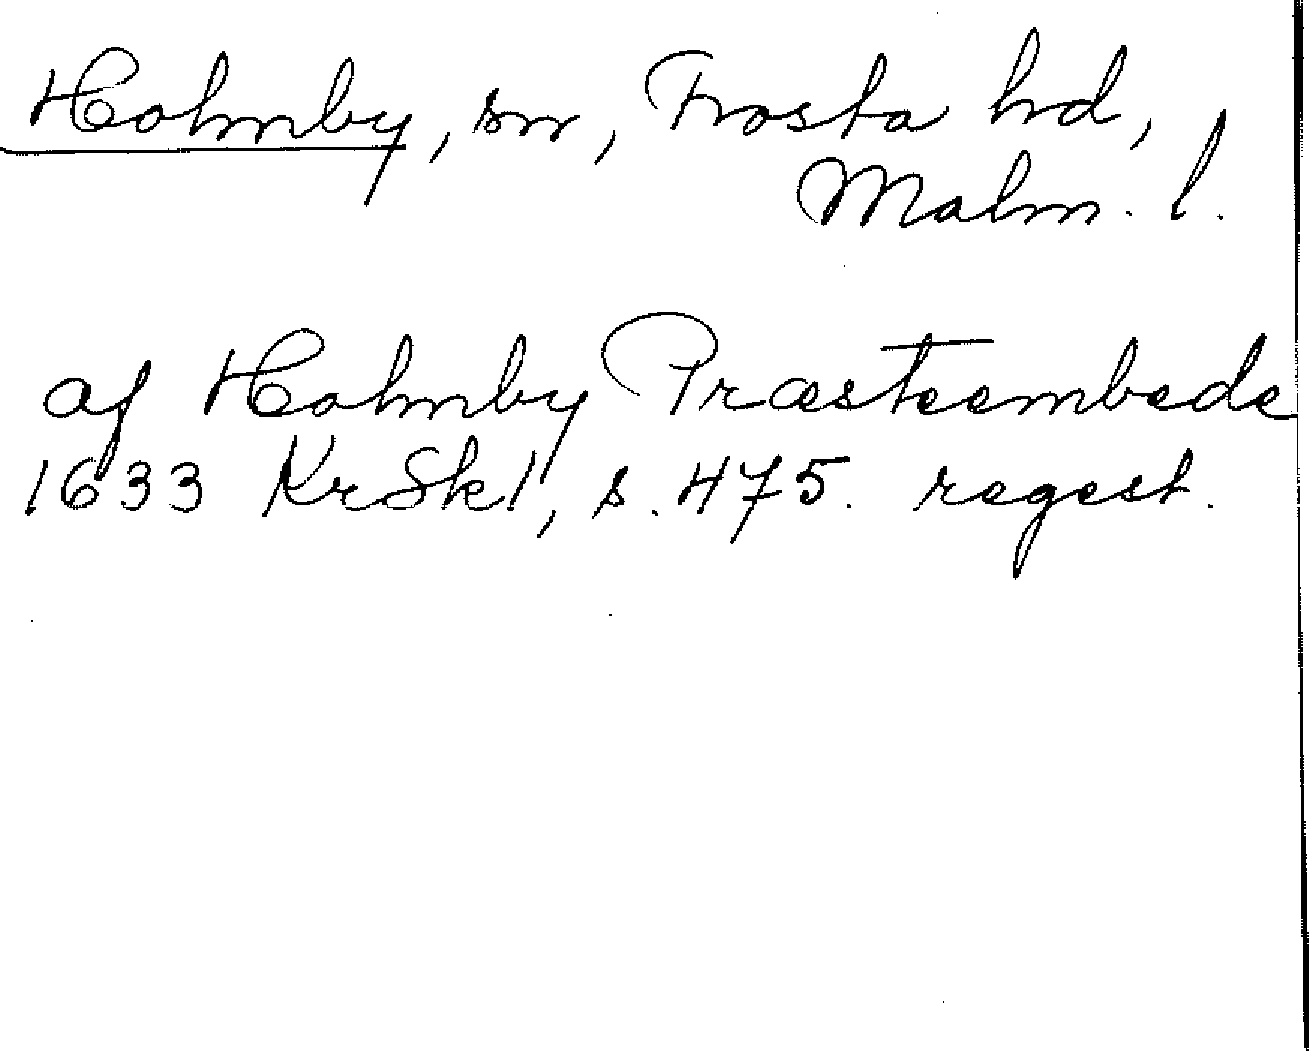 Holmby, sn, Frosta hd,
Malm. l.
af Holmby Præsteembede
1633 KrSkl, s. 475. regest.